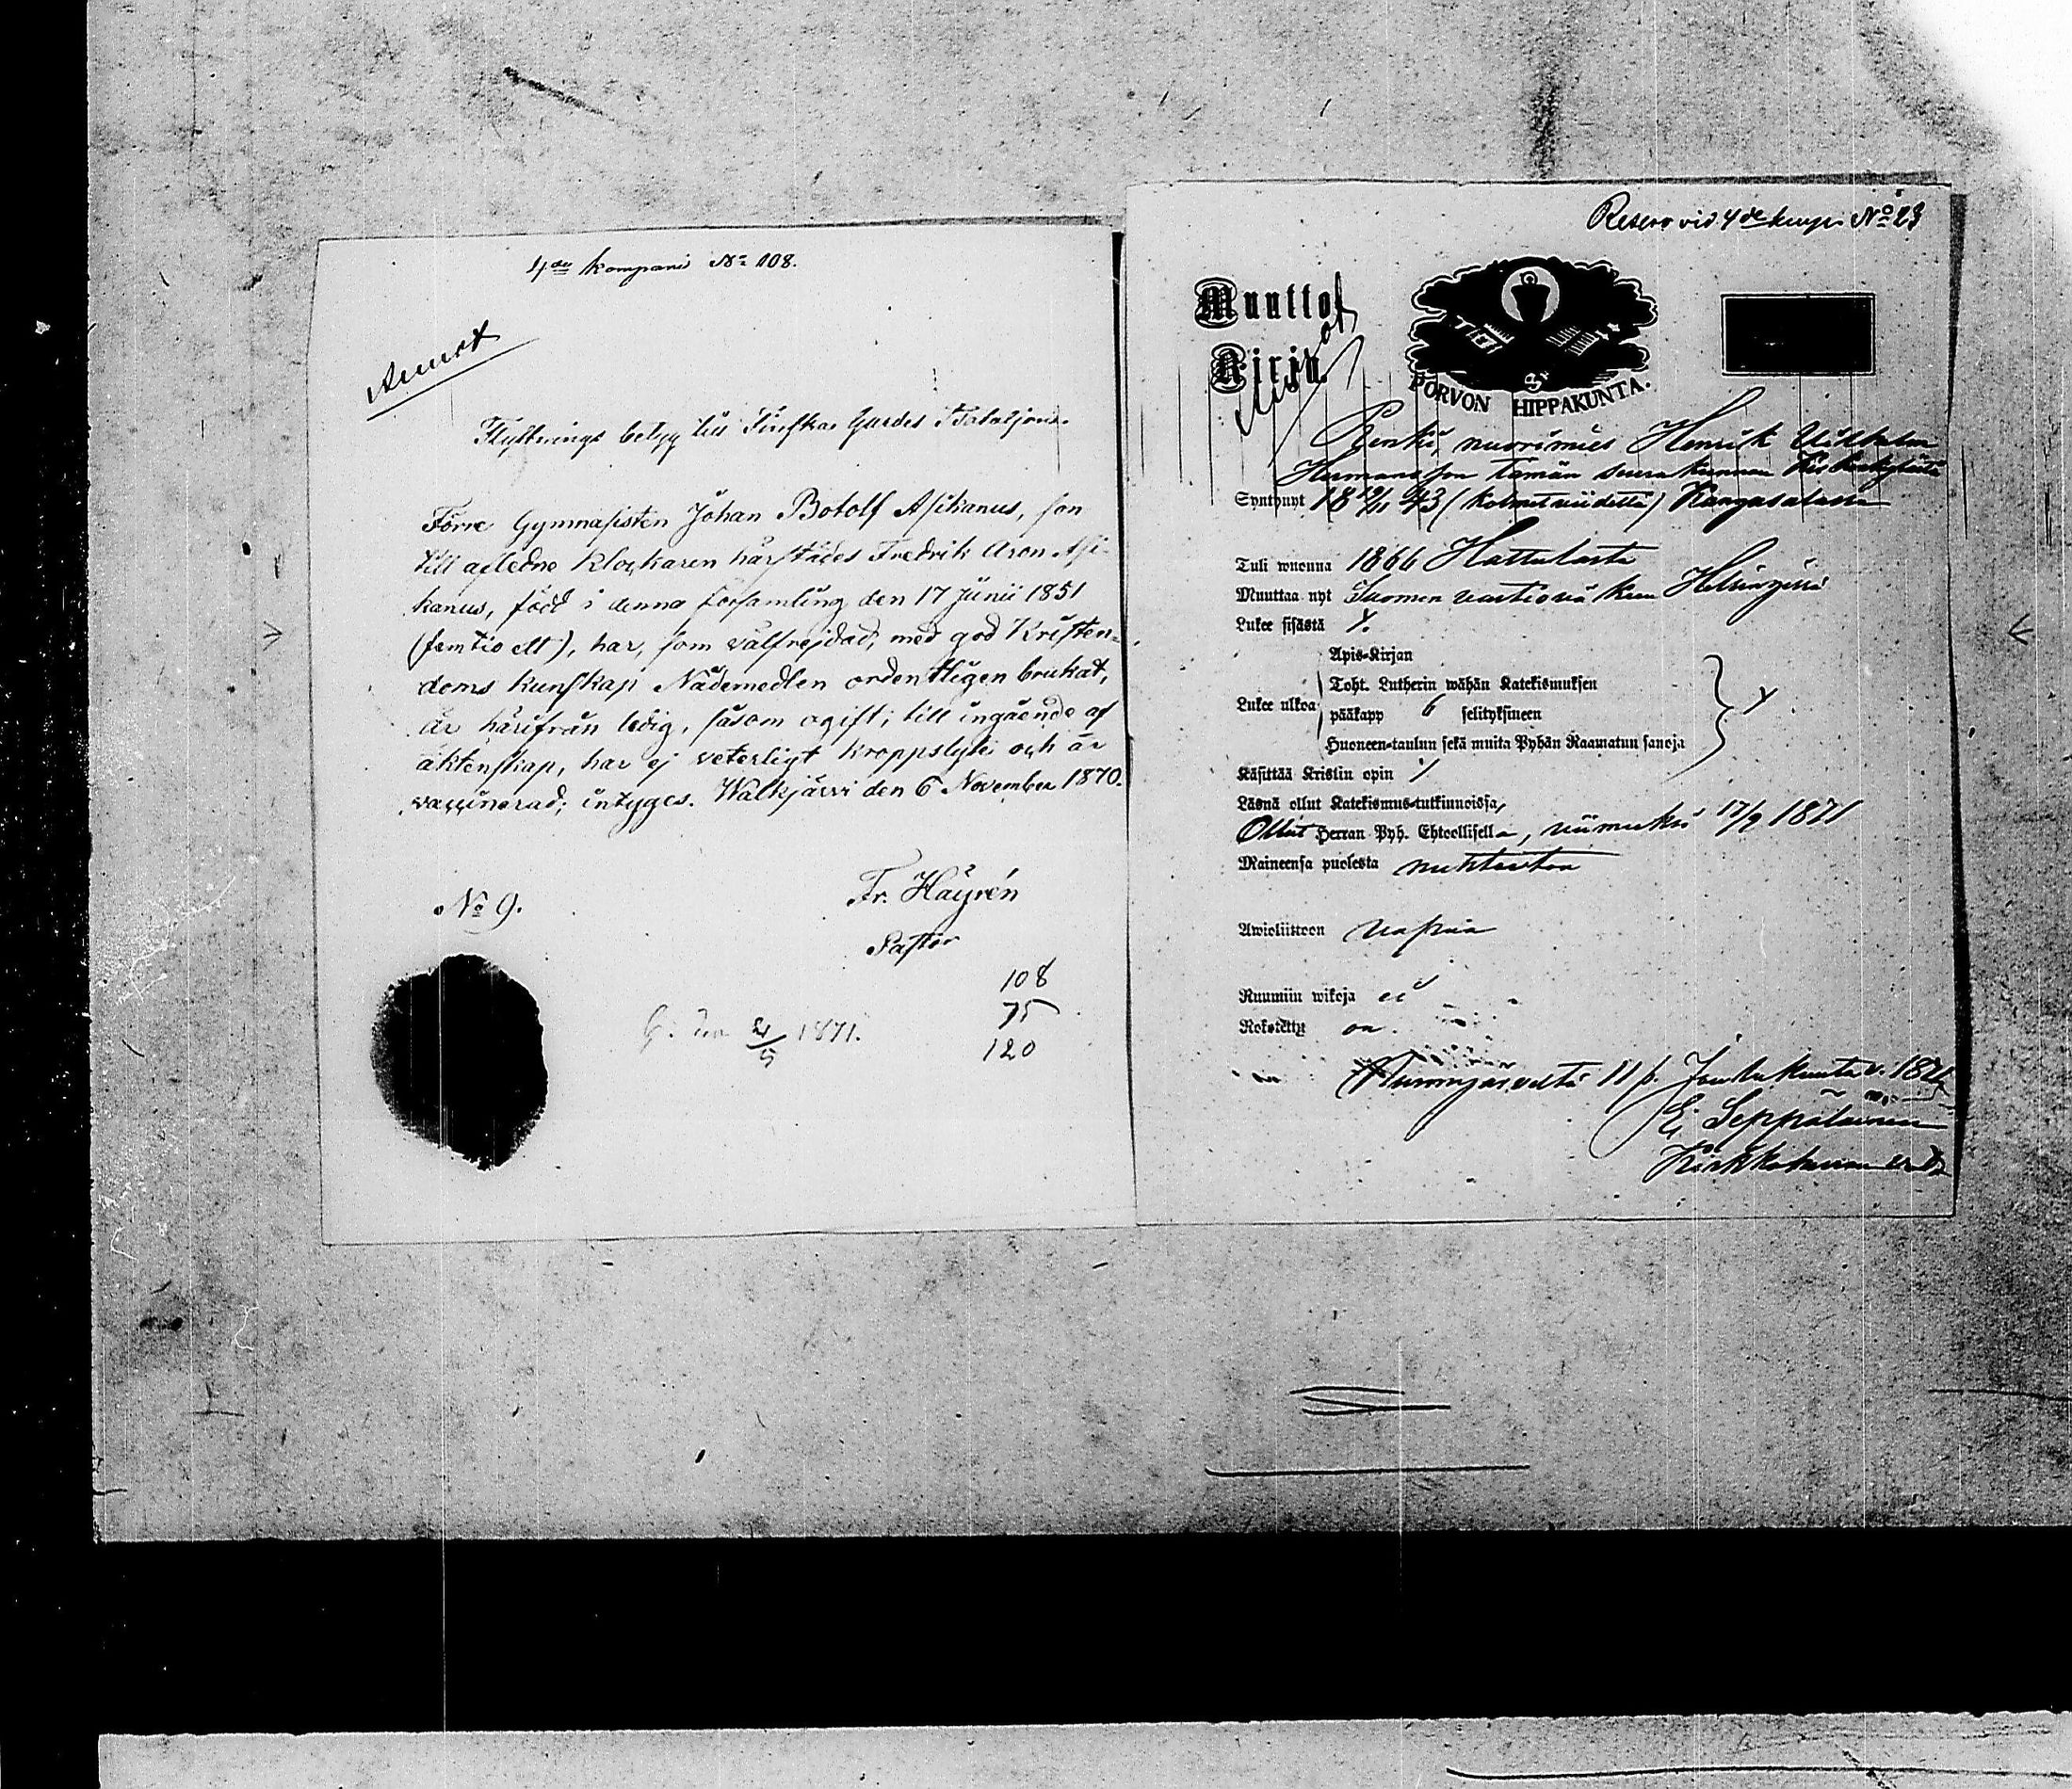 4de kompani No 108.
Flyttnings betyg till Finska Gardes Bataljon.
Förre Gymnasisten Johan Botolf Asikanus, son
till afledne klockaren härstädes Fredrik Aron Asi-
kanus, född i denna församling den 17 Junii 1851
(femtio ett), har, som välfrejdad, med god Kristen-
doms kunskap Nådemedlen ordentligen brukat,
är härifrån ledig, såsom ogift; till ingående af
äktenskap, har ej veterligt kroppslyte och är
vaccinerad; intyges. Walkjärvi den 6 November 1870.
No 9.
Fr. Häyrén
Pastor
108
75
120
1871.
Reserv vid 4de komp. No 23
Muutto
Kirja.
PORVON HIPPAKUNTA.
Renki, nuorimies Henrik Vilhelm
Hermansson tämän seurakunnan
Syntynyt 18 19/11 43 (kolmeviidettä) Kangasalasta
Tuli wuonna 1866 Hattulasta
Muuttaa nyt Suomen vartioväkeen Helsingissä
Lukee sisästä Y.
Apis-Kirjan
Toht. Lutherin wähän Katekismuksen
Lukee ulkoa
pääkapp 6 selityksineen
Y
Huoneen-taulun sekä muita Pyhän Raamatun sanoja
Käsittää Kristin opin
Läsnä ollut Katekismus-tutkinnoissa,
Ollut Herran Pyh. Ehtoollisella, viimeksi 17/9 1871
Maineensa puolesta nuhteeton
Awioliittoon vapaa
Ruumiin wikoja ei
Rokotettu on.
Nurmijärveltä 11 p. Joulukuuta v. 1871
E. Seppälainen
Kirkkoherran